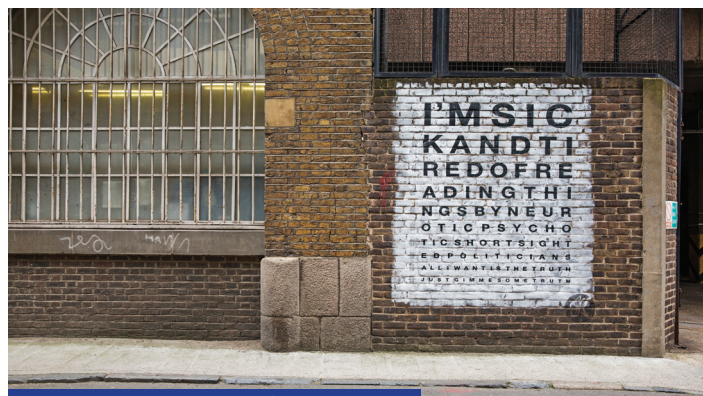 I'MSIC
KANDTI
REDOFRE
ADINGTHI
NGSBYNEUR
OTICPSYCHO
TICSHORTSIGHT
EDPOLITICIANS
ALLIWANTISTHETRUTH
JUSTGIMMESOMETRUTH